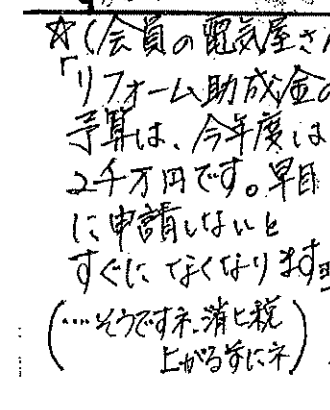 ☆(会員の電気屋さん
「リフォーム助成金の
予算は、今年度は
2千万円です。早目
に申請しないと
すぐに なくなります
(‥‥そうですネ、消ヒ税
上がる前にネ)